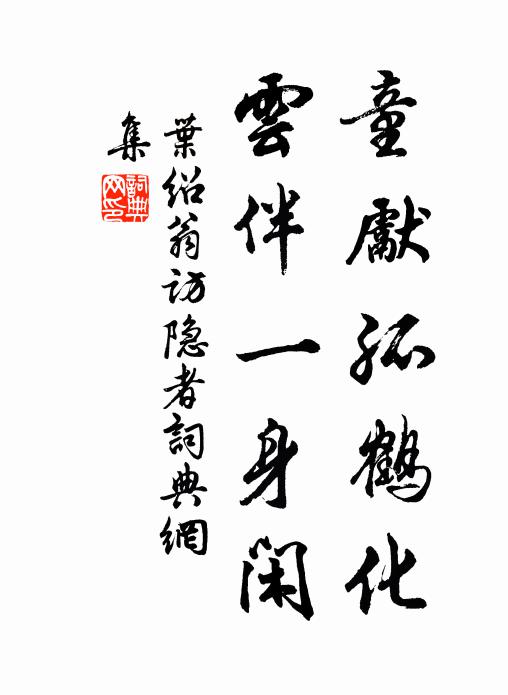 童獻孤鶴化
雲伴一身閑
葉绍翁訪隐者詞典網
集
詞典
网印